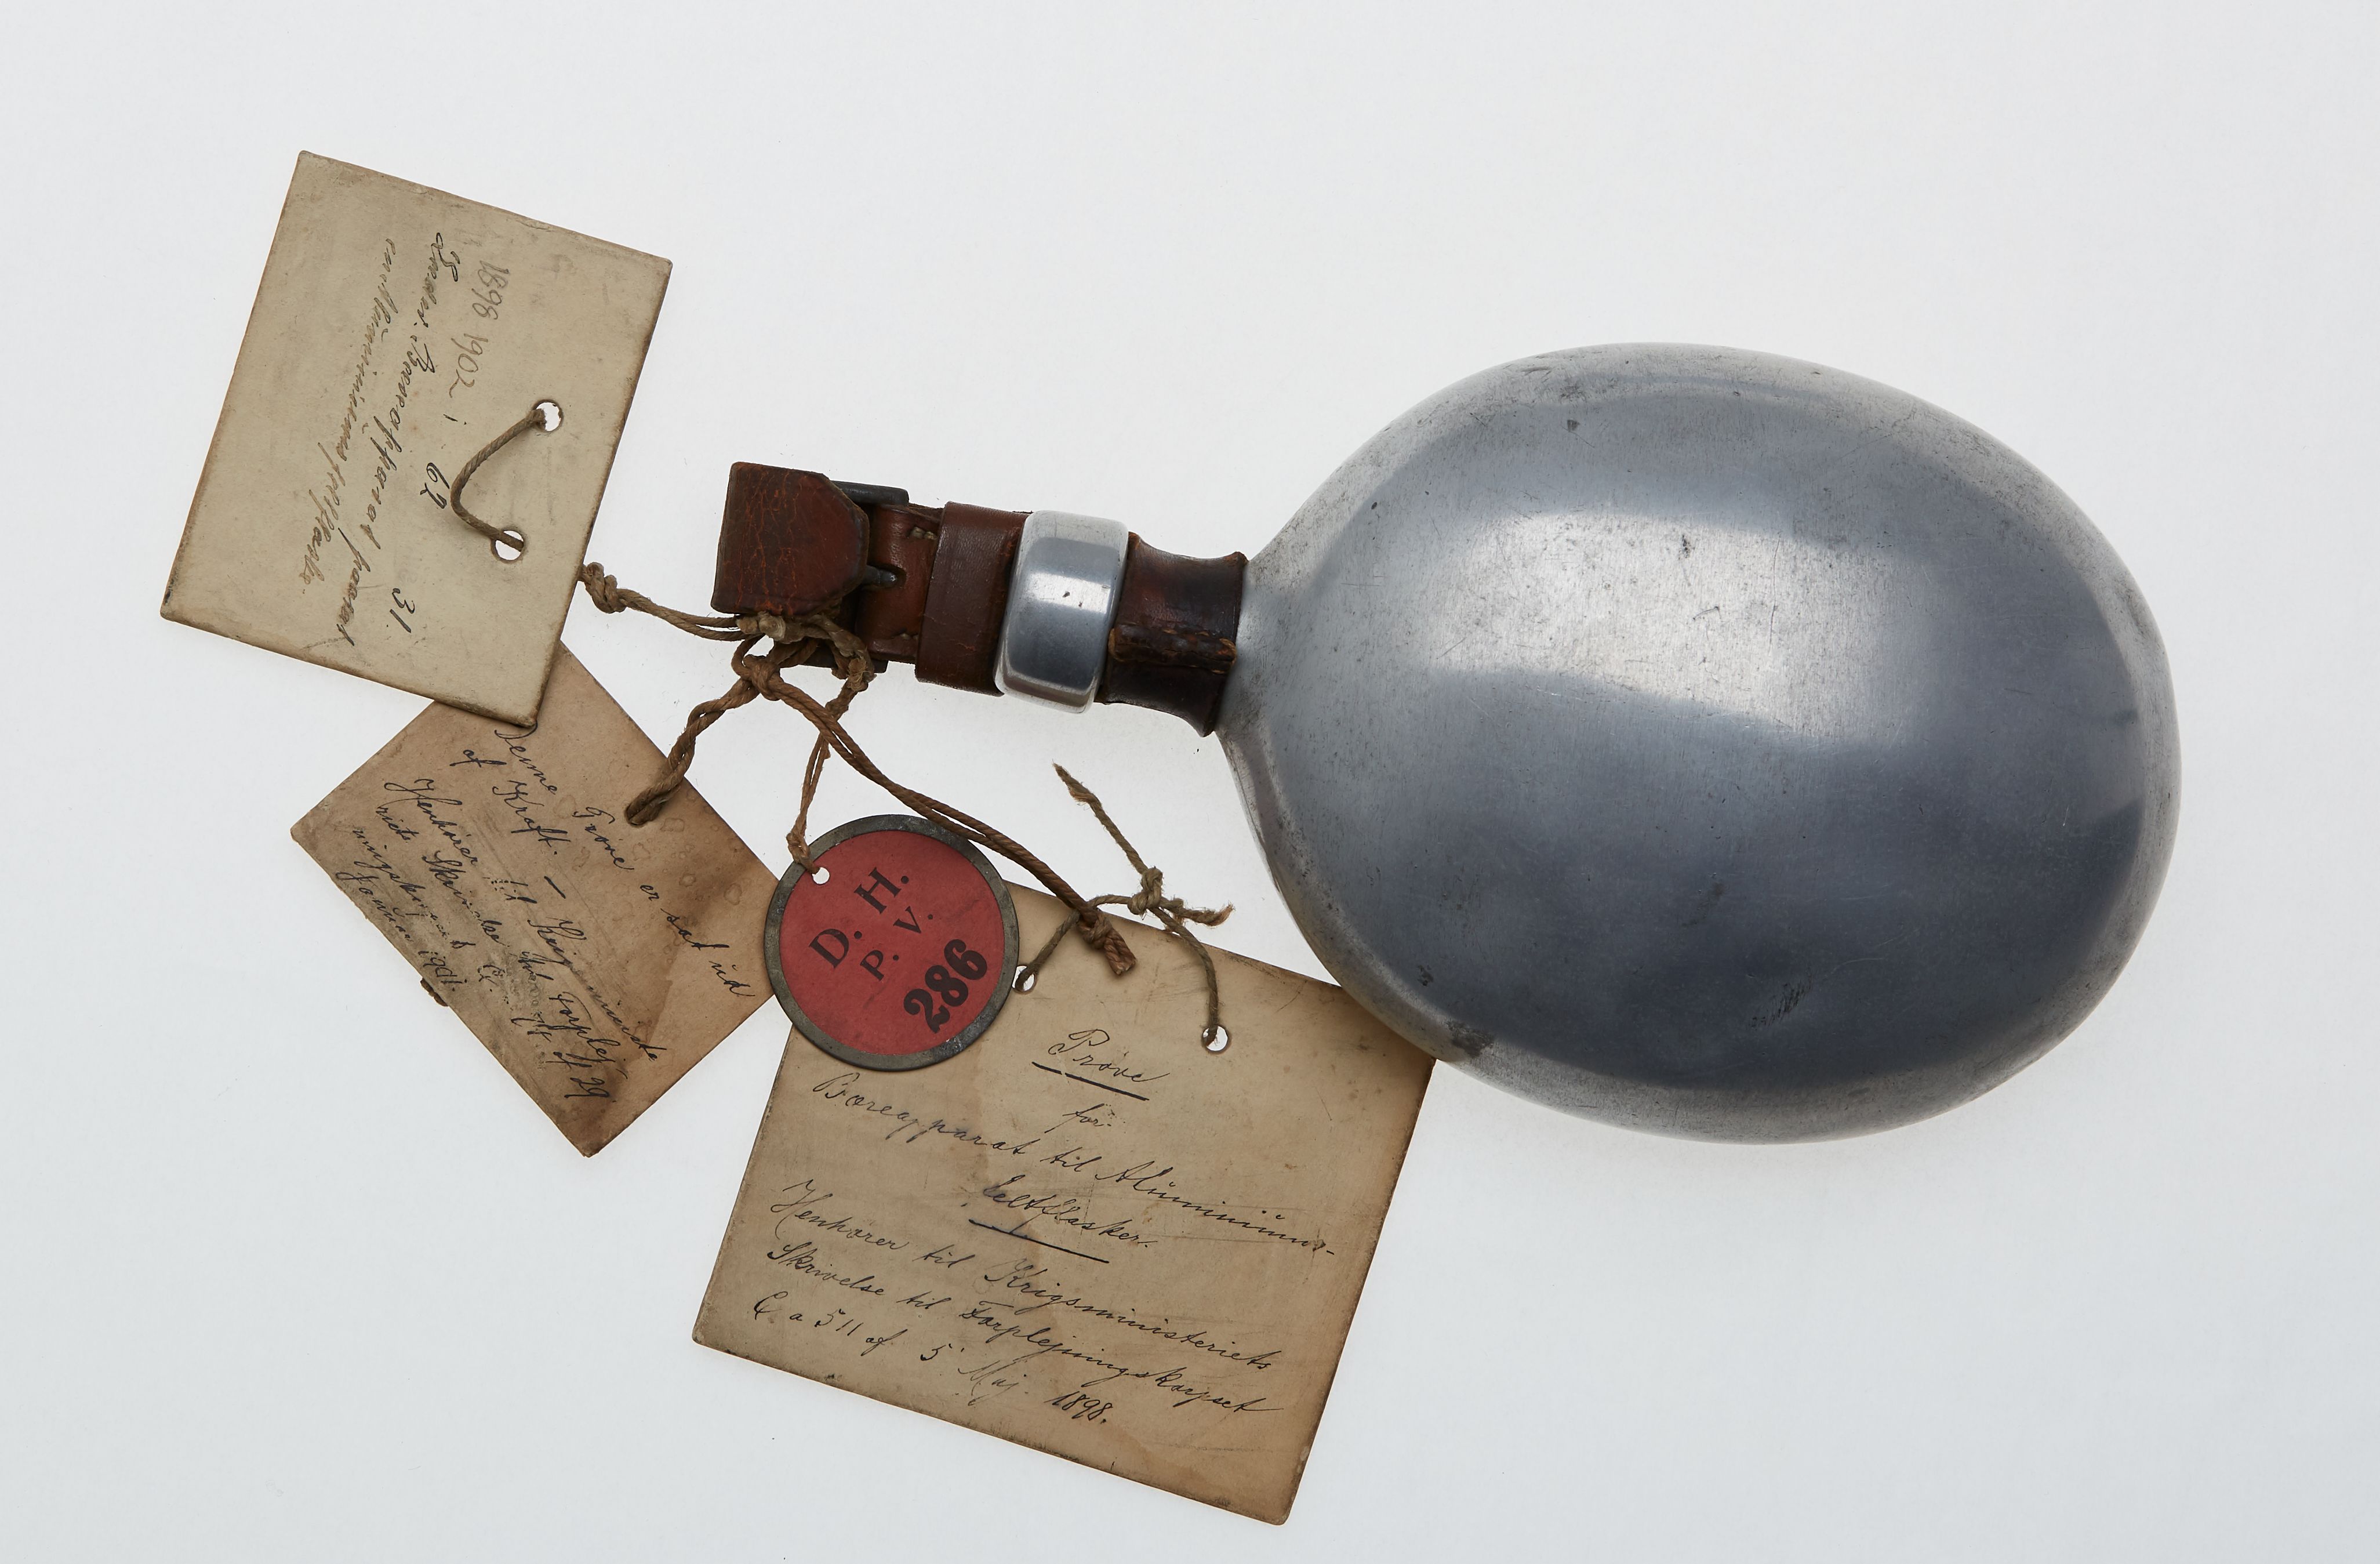 1898 1902 i 62 31
Bæreapparat
Denne Prøve er sat ud
af Kraft. –
Henhører til Krigsministe
riets Skrivelse til Forplej
af 29
1901.
D. H.
P. V.
286
Prøve
for
Bæreapparat til Aluminiums-
Feltflasker.
Henhører til Krigsministeriets
Skrivelse til Forplejningskorpset
C a 511 af 5' Maj 1898.